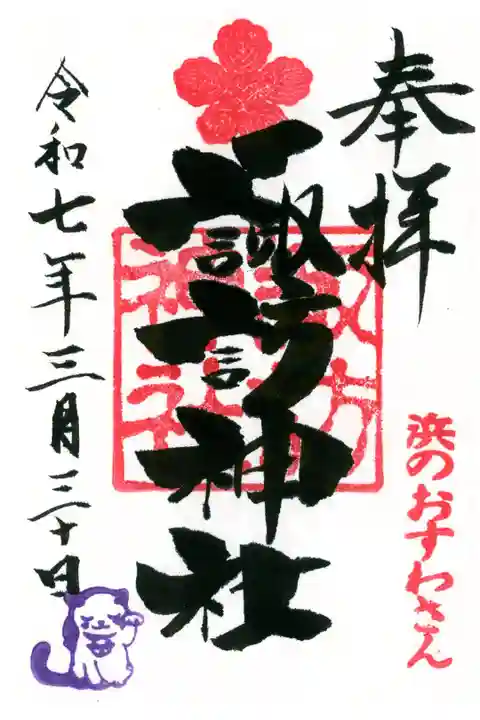 奉拝
諏訪神社
諏訪
神社
浜のおすわさん
令和七年三月三十日